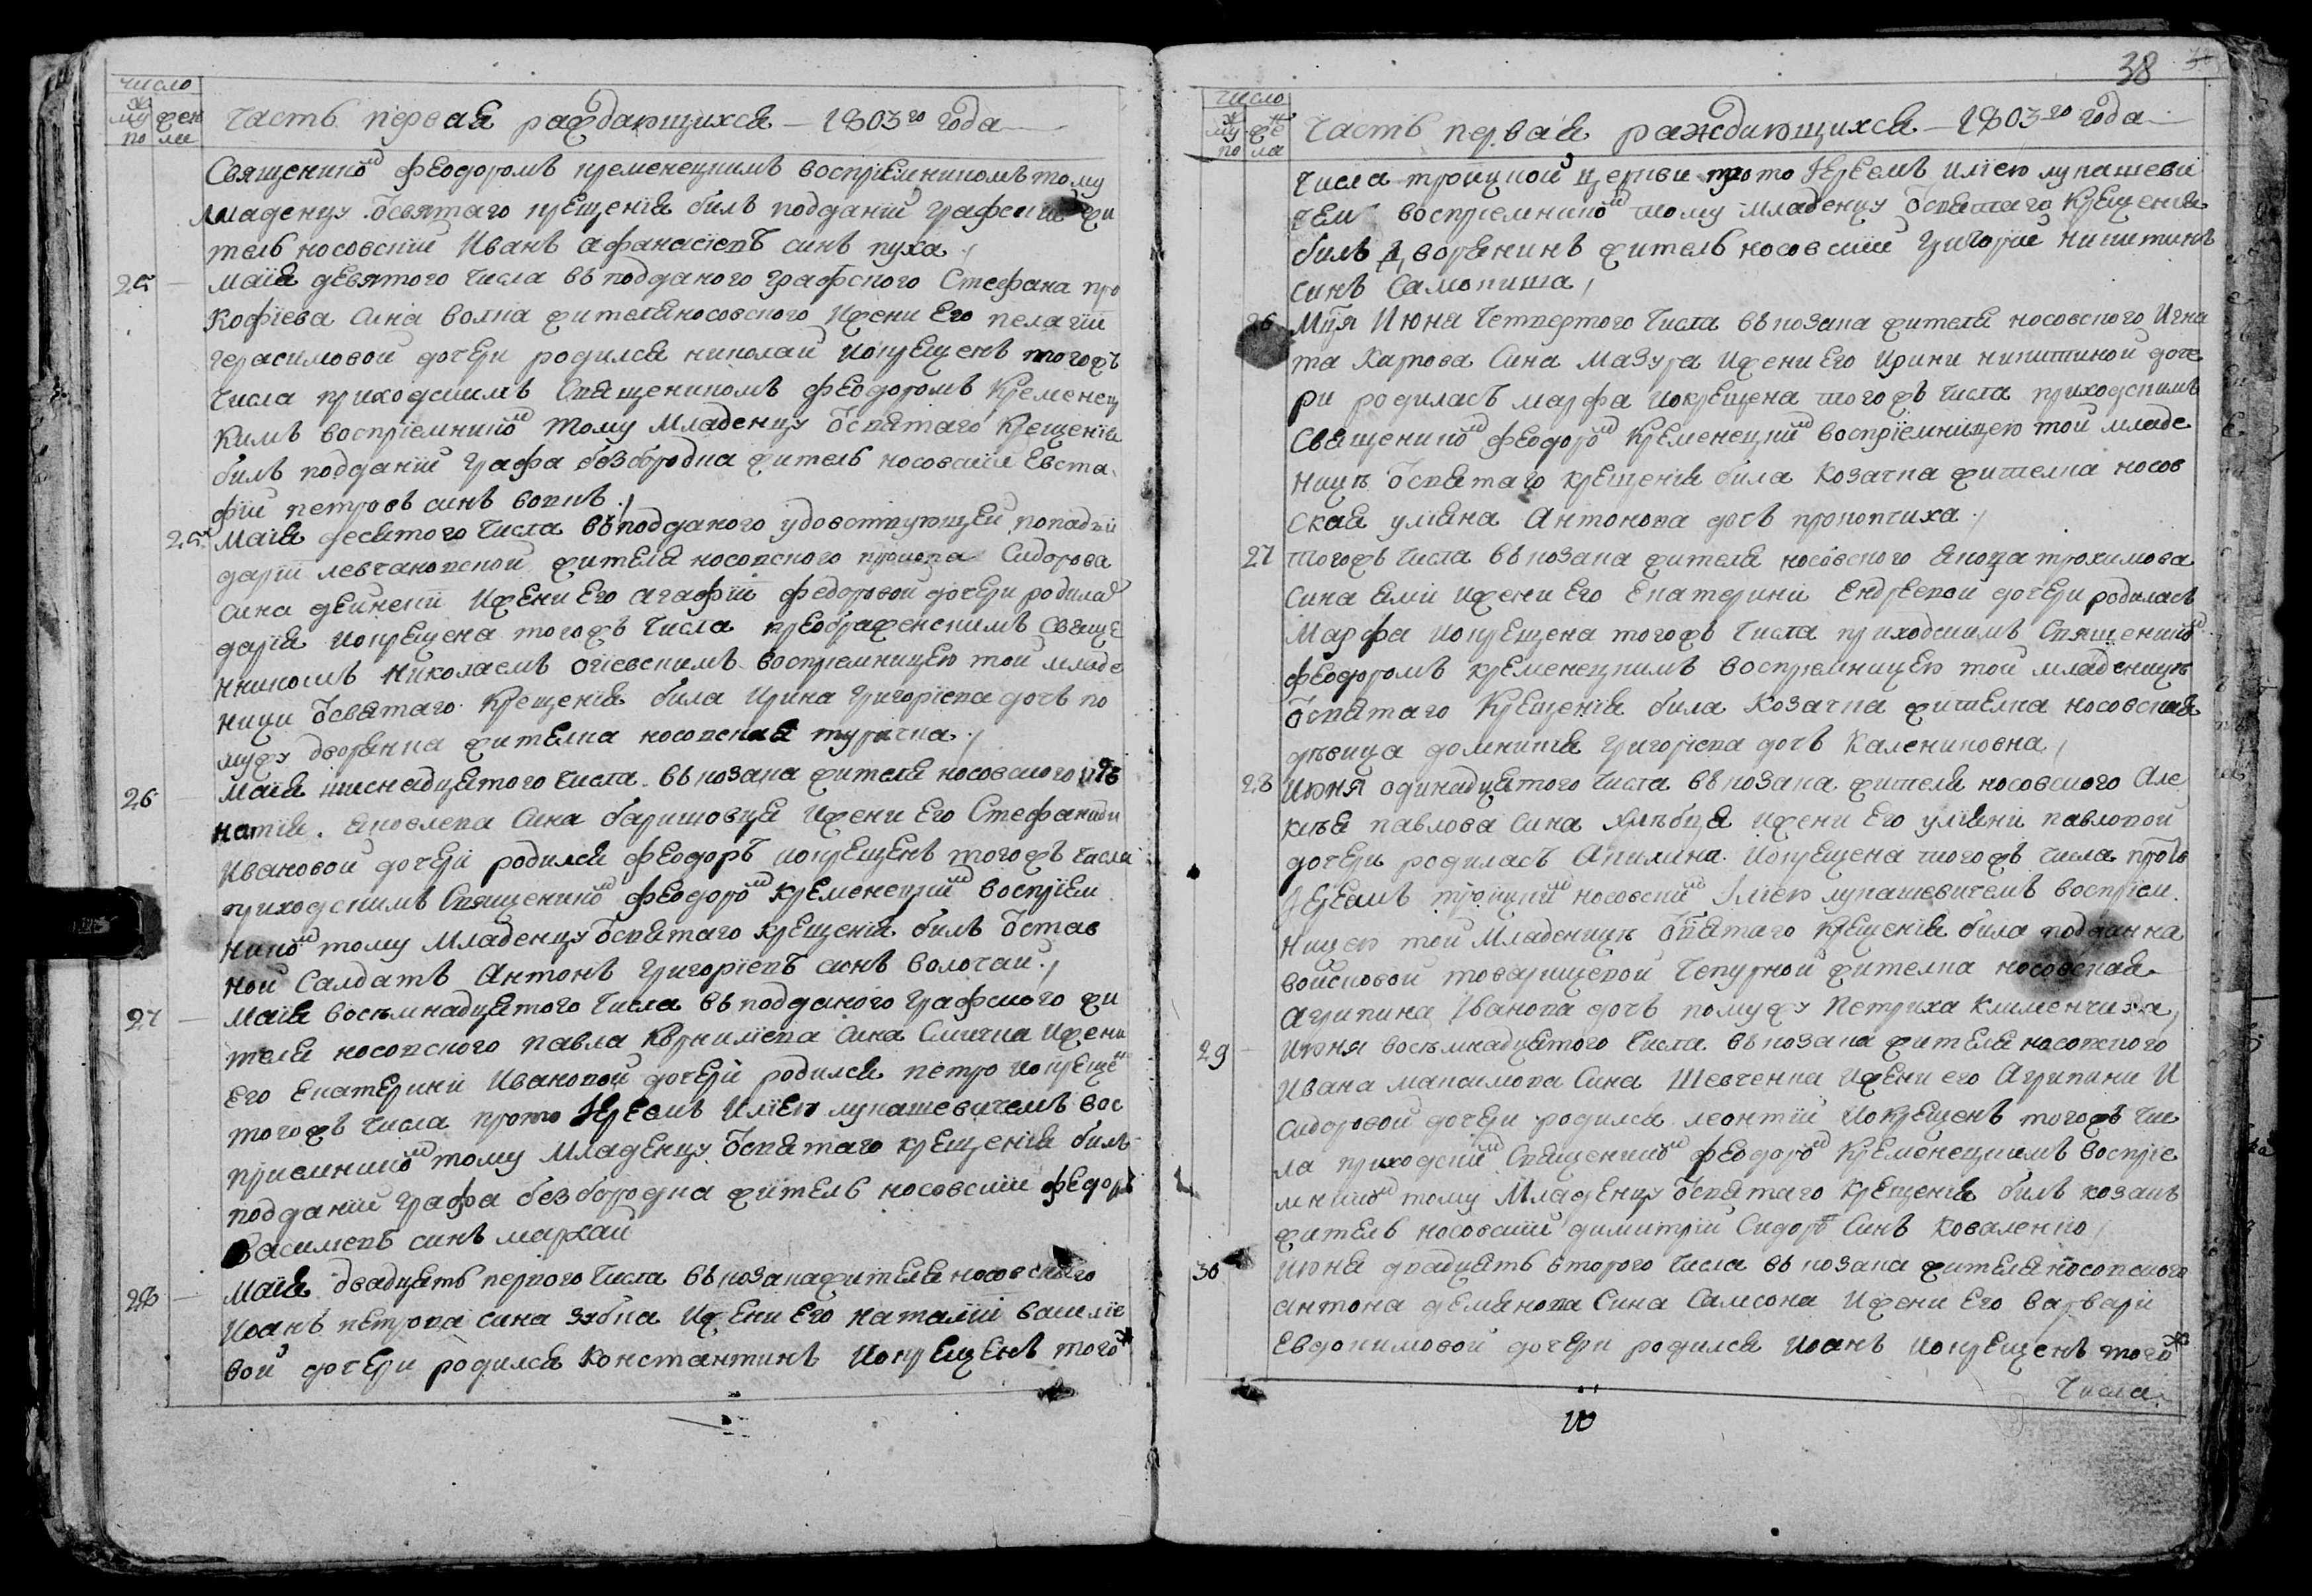 число
му жен
по ли
Часть первая раждающихся — 1803го года
Священником Феодоромъ Кременецкимъ восприемникомъ тому
младенцу ѿ святаго крещенія билъ подданій графскій жи
тель носовскій Иванъ Афанасіевъ синъ пуха
25 Маія девятого числа въ подданого графского Стефана про
кофіева сина волка жителя носовского и жени его пелагіи
герасимовой дочери родился николай и окрещенъ того жъ
числа приходскимъ Священикомъ Феодоромъ Кременец
кимъ восприемником тому младенцу ѿ святаго крещенія
билъ подданій графа безбородка житель носовскій Евста
фій петровъ синъ вовкъ
25 Маія десятого числа въ подданого удовствующей попадіи
даріи левчановской жителя носовского прокопа Сидорова
сина дейнеки и жени его агафіи федоровой дочери родилас
дарія и окрещена того жъ числа преображенскимъ свяще
нникомъ Николаемъ огіевскимъ восприемницею той младе
ници ѿ святаго крещенія била Ирина григоріева дочъ по
мужу дворянка жителка носовская турачка
26 Маія шеснадцатого числа въ козака жителя носовского иг
натія яковлева сина баришовця и жени его Стефаниди
Ивановой дочери родился феодоръ и окрещенъ того жъ числа
приходскимъ Священиком феодором Кременецким восприем
ником тому младенцу ѿ святаго крещенія билъ ѿстав
ной салдатъ Антонъ григоріевъ синъ волочай
27 Маія восемнадцатого числа въ подданого графского жи
теля носовского павла Корниліева сина Слычка и жени
его екатерини Ивановой дочери родился петро и окрещен
того жъ числа прото Іереемъ Иліею лукашевичемъ вос
приемником тому младенцу ѿ святаго крещенія билъ
подданій графа безбородка житель носовскій федоръ
Василіевъ синъ мархай
28 Маія двадцять первого числа въ козака жителя носовского
Иоанъ петрова сина зябка и жени его наталіи василіе
вой дочери родился Константинъ и окрещенъ того ж
38
число
му же
по ла
Часть первая раждающихся — 1803го года
числа троицкой церкви прото Іереемъ Иліею лукашеви
чем восприемником тому младенцу ѿ святаго крещенія
билъ дворянинъ житель носовскій григорій никитинъ
синъ Самокиша
26 Мця Июня четвертого числа въ козака жителя носовского Игна
та Карпова сина мазура и жени его Ирини никитиной доче
ри родиласъ марфа и окрещена того жъ числа приходскимъ
Священиком феодором Кременецким восприемницею той младе
ницѣ ѿ святаго крещенія била козачка жителка носов
ская уліяна Антонова дочъ прокопчиха
27 того жъ числа въ козака жителя носовского якова трохимова
сина ємц и жени его екатерини Ендреевой дочери родиласъ
Марфа и окрещена того жъ числа приходскимъ Священиком
феодоромъ кременецкимъ восприемницею той младеницѣ
ѿ святаго крещенія била козачка жителка носовская
дѣвица домникія григоріева дочъ Калениковна
28 Июня одинадцятого числа въ козака жителя носовского Але
ксѣя павлова сина хлѣбця и жени его уліяни павловой
дочери родиласъ Акилина и окрещена того жъ числа прото
Іереемъ троицким носовским Іліею лукашевичемъ восприем
ницею той младеницѣ ѿ святаго крещенія била подданка
войсковой товарищевой Чепурной жителка носовская
Агрипина Іванова дочъ по мужу петриха клименчиха
29 Июня восемнадцятого числа въ козака жителя носовского
Ивана максимова сина Шевченка и жени его Агрипини И
сидоровой дочери родился леонтій и окрещенъ того жъ чис
ла приходским Священиком феодором Кременецкимъ восприе
мником тому младенцу ѿ святаго крещенія билъ козакъ
житель носовскій димитрій Сидоров синъ Коваленко
30 Июня двадцять второго числа въ козака жителя носовского
антона демянова сина Самсона и жени его варвари
Евдокимовой дочери родился Иоанъ и окрещенъ того ж
числа